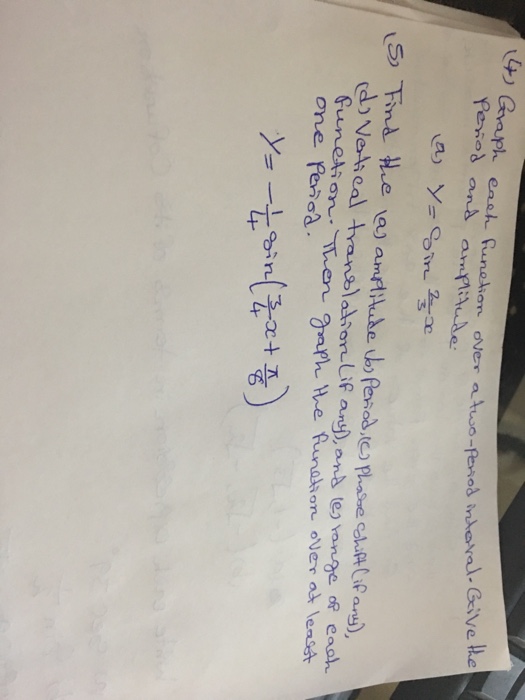 (4) Graph each function over a two-period interval. Give the
period and amplitude.
(a) y = Sin 2/3 x
(5) Find the (a) amplitude (b) Period, (c) phase shift (if any),
(d) Vertical translation (if any), and (e) range of each
function. Then graph the function over at least
one period.
y = -1/4 Sin(3/4 x + π/8)